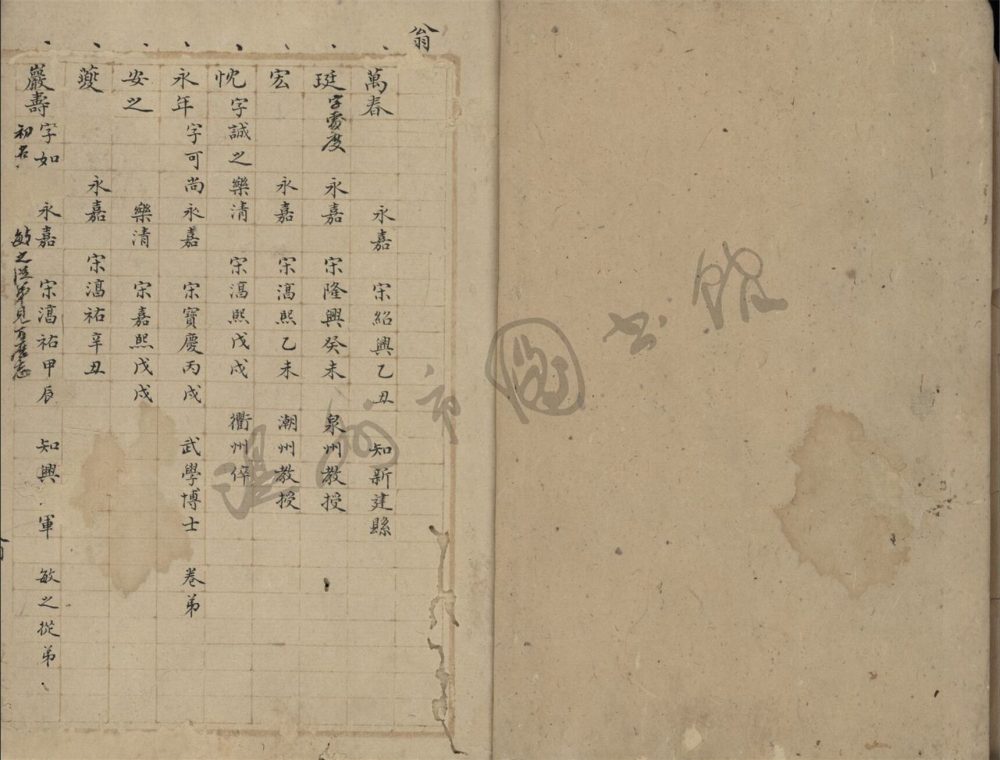 翁
萬春 永嘉 宋紹興乙丑 知新建縣
珽 字雲度 永嘉 宋隆興癸未 泉州教授
宏 永嘉 宋淳熙乙未 潮州教授
忱 字誠之 樂清 宋淳熙戊戌 衢州倅
永年 字可尚 永嘉 宋寶慶丙戌 武學博士 卷弟
安之 樂清 宋嘉熙戊戌
夔 永嘉 宋淳祐辛丑
巖壽 字如 永嘉 宋淳祐甲辰 知興 軍 敏之從弟
初名 敏之從弟見万歷志
温州市圖书館